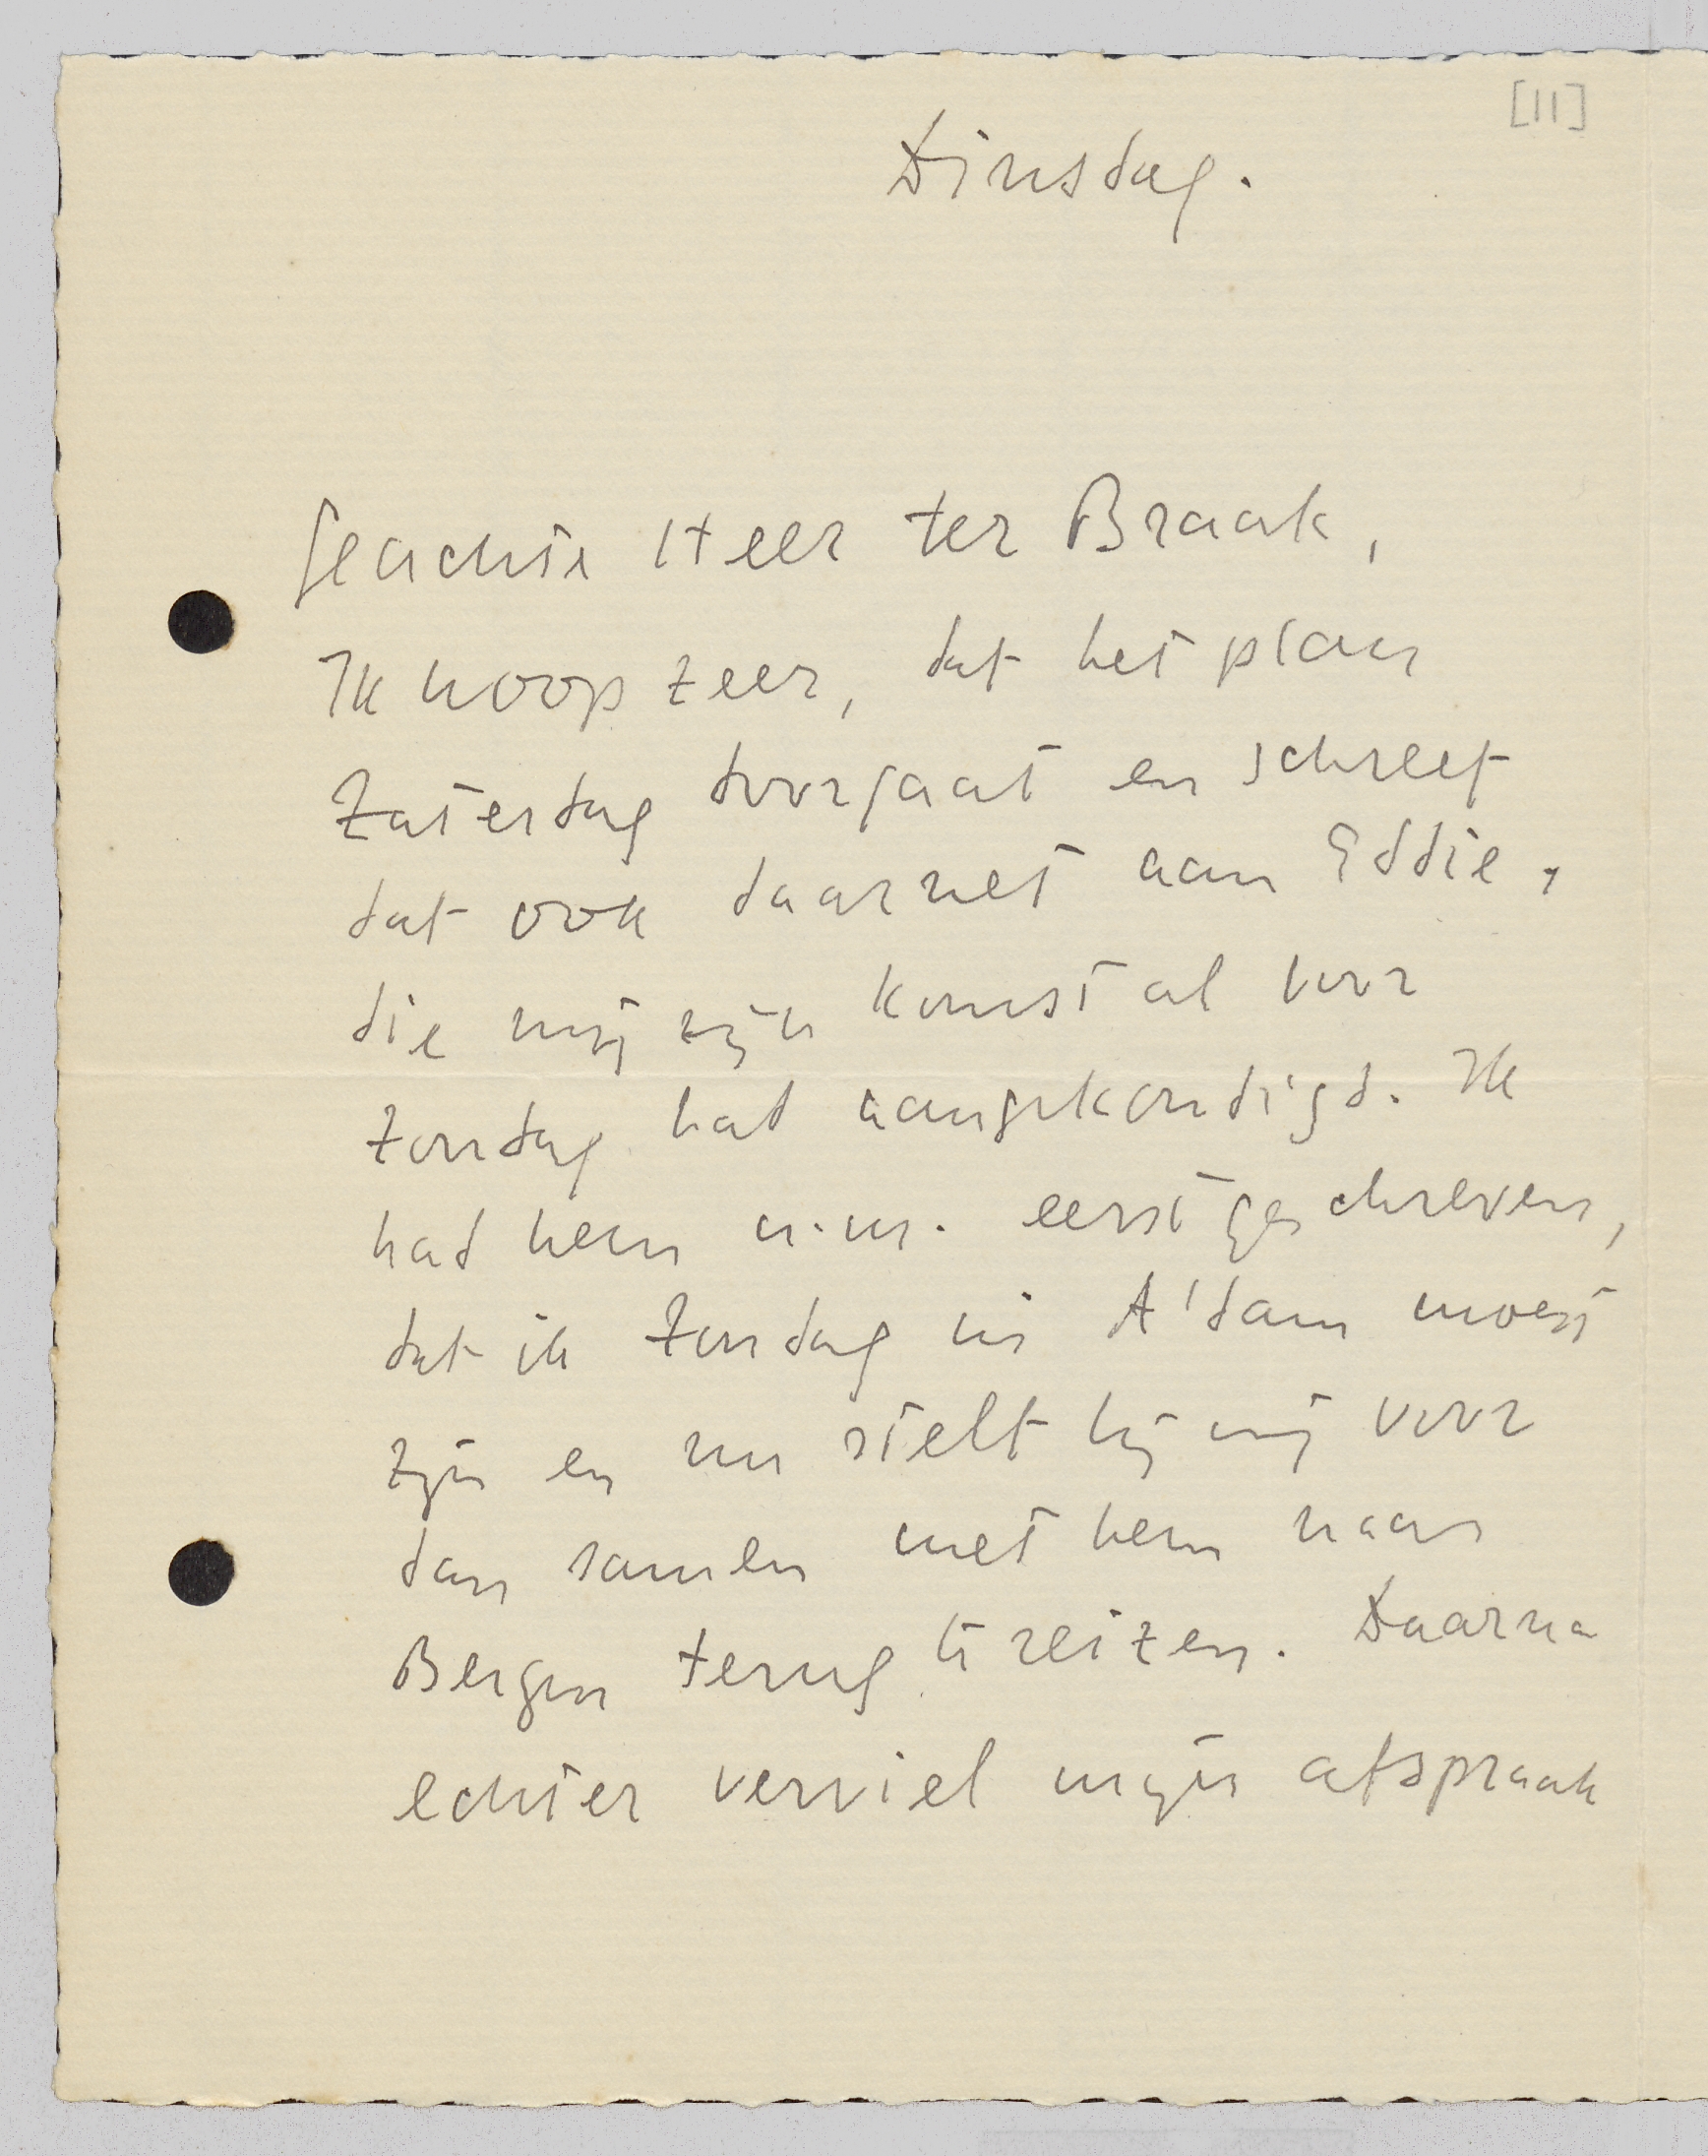 [11]
Dinsdag.
Geachte Heer ter Braak,
Ik hoop zeer, dat het plan
Zaterdag doorgaat en schreef
dat ook daarnet aan Eddie,
die mij zijn komst al voor
Zondag had aangekondigd. Ik
had hem n.m. eerst geschreven,
dat ik Zondag in A'dam moest
zijn en nu stelt hij mij voor
dan samen met hem naar
Bergen terug te reizen. Daarna
echter verviel mijn afspraak